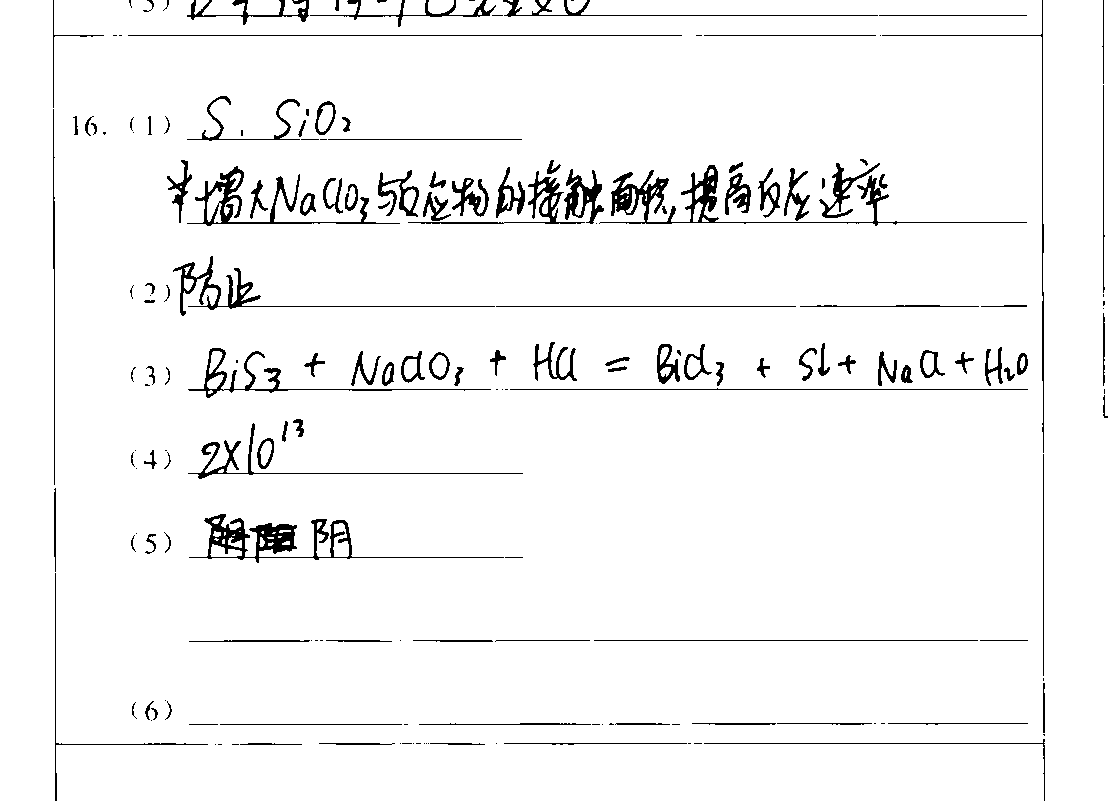 16.（1）S. SiO₂
增大NaClO₃与反应物的接触面积,提高反应速率
（2）防止
（3）BiS₃ + NaClO₃ + HCl = BiCl₃ + S↓ + NaCl + H₂O
（4）2×10¹³
（5）阴
（6）